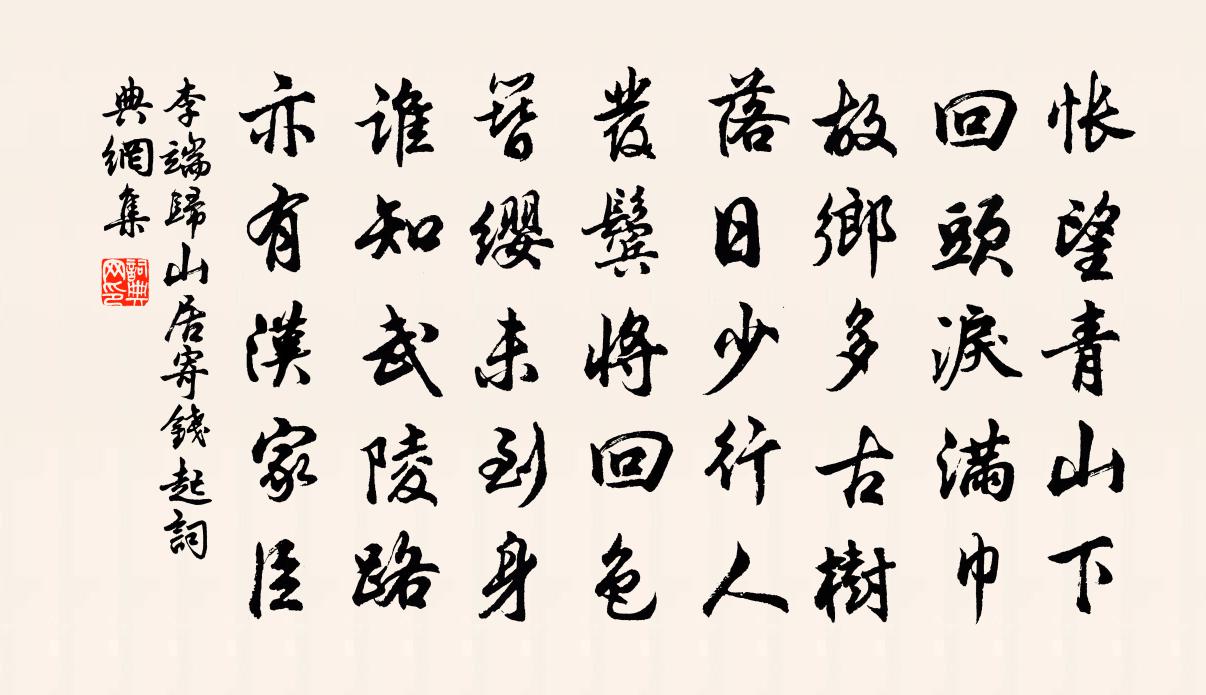 悵望青山下
回頭淚滿巾
故鄉多古樹
落日少行人
發鬢將回色
簪纓未到身
誰知武陵路
亦有漢家臣
李端歸山居寄錢起詞
典網集
詞典
网印